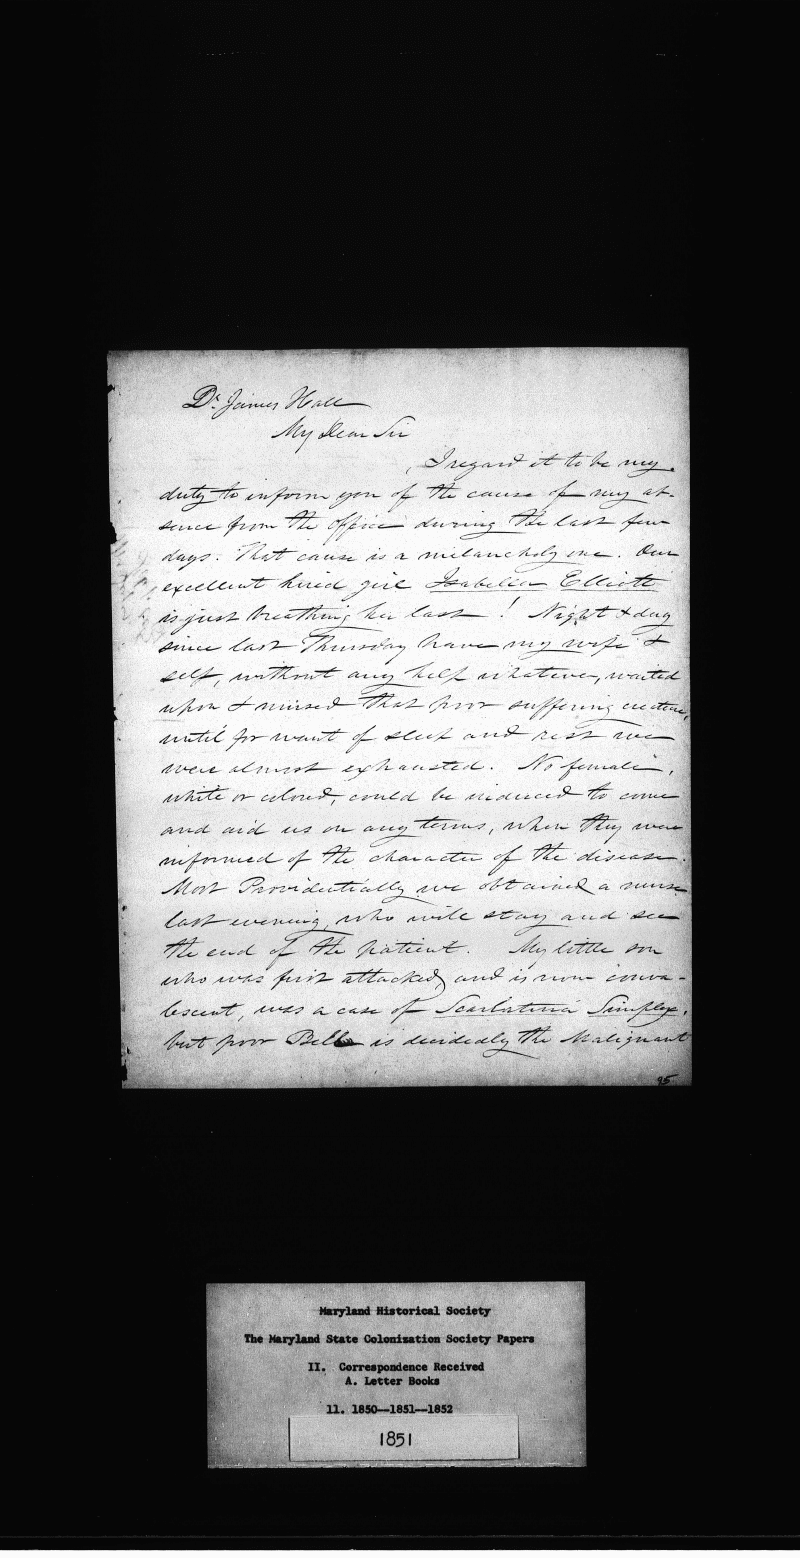 Dr. James Hall
My Dear Sir
I regard it to be my
duty to inform you of the cause of my ab-
sence from the office during the last few
days. That cause is a melancholy one. Our
excellent hired girl Isabella Elliott
is just breathing her last ! Night & day
since last Thursday have my wife &
self, without any help whatever, waited
upon & nursed that poor suffering creature,
until for want of sleep and rest we
were almost exhausted. No female,
white or colored, could be induced to come
and aid us on any terms, when they were
informed of the character of the disease.
Most Providentially we obtained a nurse
last evening, who will stay and see
the end of the patient. My little son
who was first attacked, and is now conva-
lescent, was a case of Scarlatina Simplex,
but poor Bella is decidedly the Malignant
95
Maryland Historical Society
The Maryland State Colonization Society Papers
II. Correspondence Received
A. Letter Books
11. 1850--1851--1852
1851